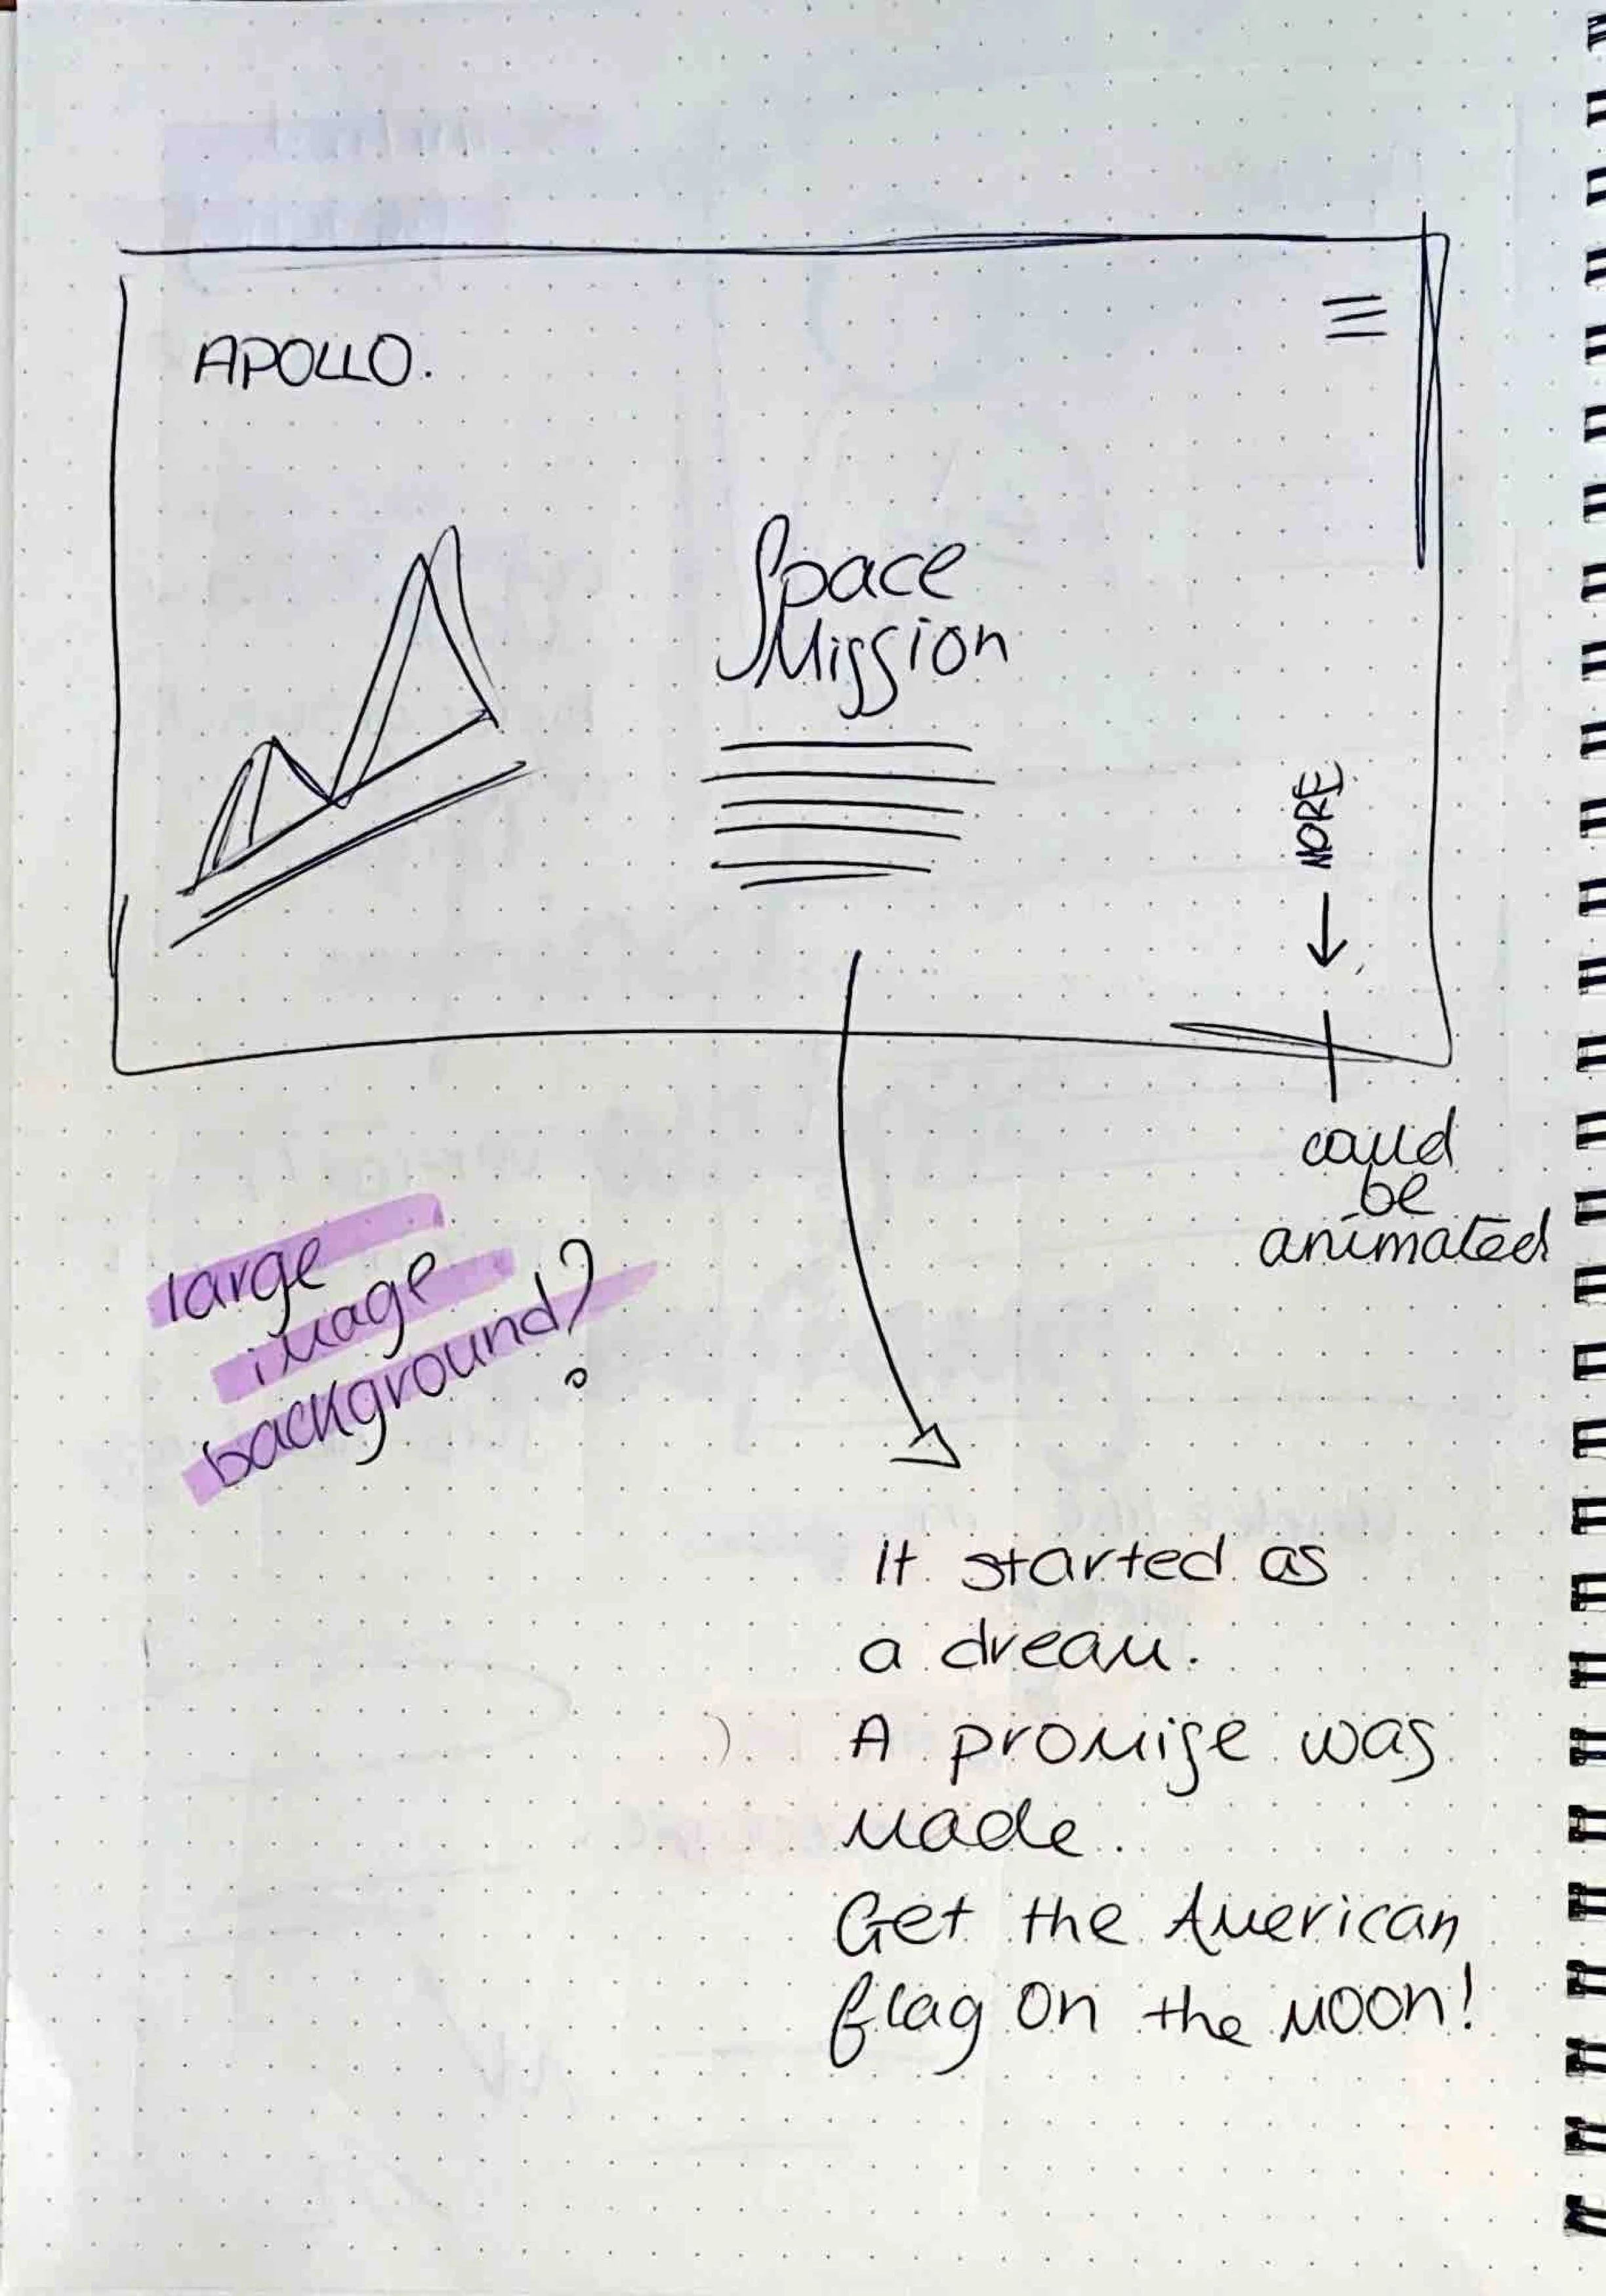 APOLLO.
Space
Mission
MORE
could
be
animated
large
image
background?
it started as
a dream.
A promise was
made.
Get the American
flag on the moon!